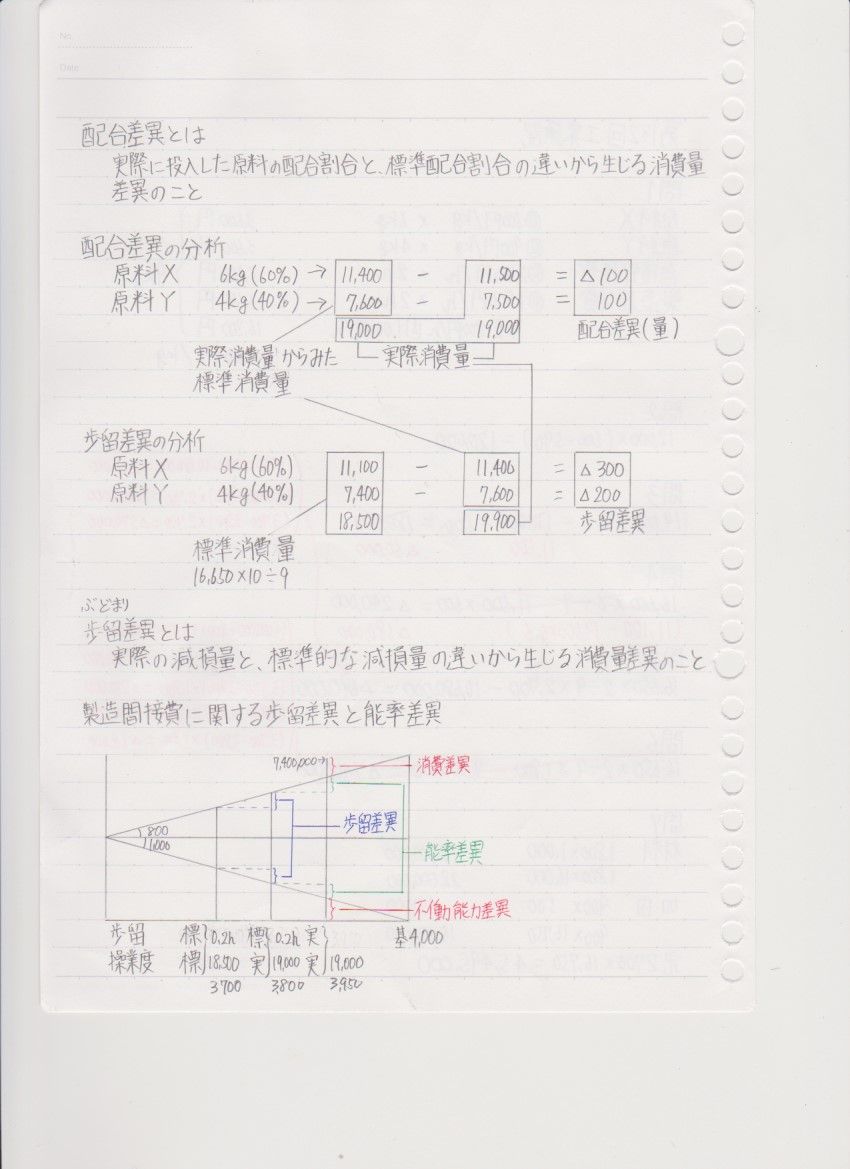 No.
Date
配合差異とは
実際に投入した原料の配合割合と、標準配合割合の違いから生じる消費量
差異のこと
配合差異の分析
原料X 6kg(60%) → 11,400 － 11,500 = △100
原料Y 4kg(40%) → 7,600 － 7,500 = 100
19,000 19,000 配合差異(量)
実際消費量からみた 実際消費量
標準消費量
歩留差異の分析
原料X 6kg(60%) 11,100 － 11,400 = △300
原料Y 4kg(40%) 7,400 － 7,600 = △200
18,500 19,900 歩留差異
標準消費量
16,650×10÷9
ぶどまり
歩留差異とは
実際の減損量と、標準的な減損量の違いから生じる消費量差異のこと
製造間接費に関する歩留差異と能率差異
7,400,000→ 消費差異
歩留差異
800
1,000
能率差異
不働能力差異
歩留 標 0.2h 標 0.2h 実 基4,000
操業度 標 18,500 実 19,000 実 19,000
3700 3,800 3,950